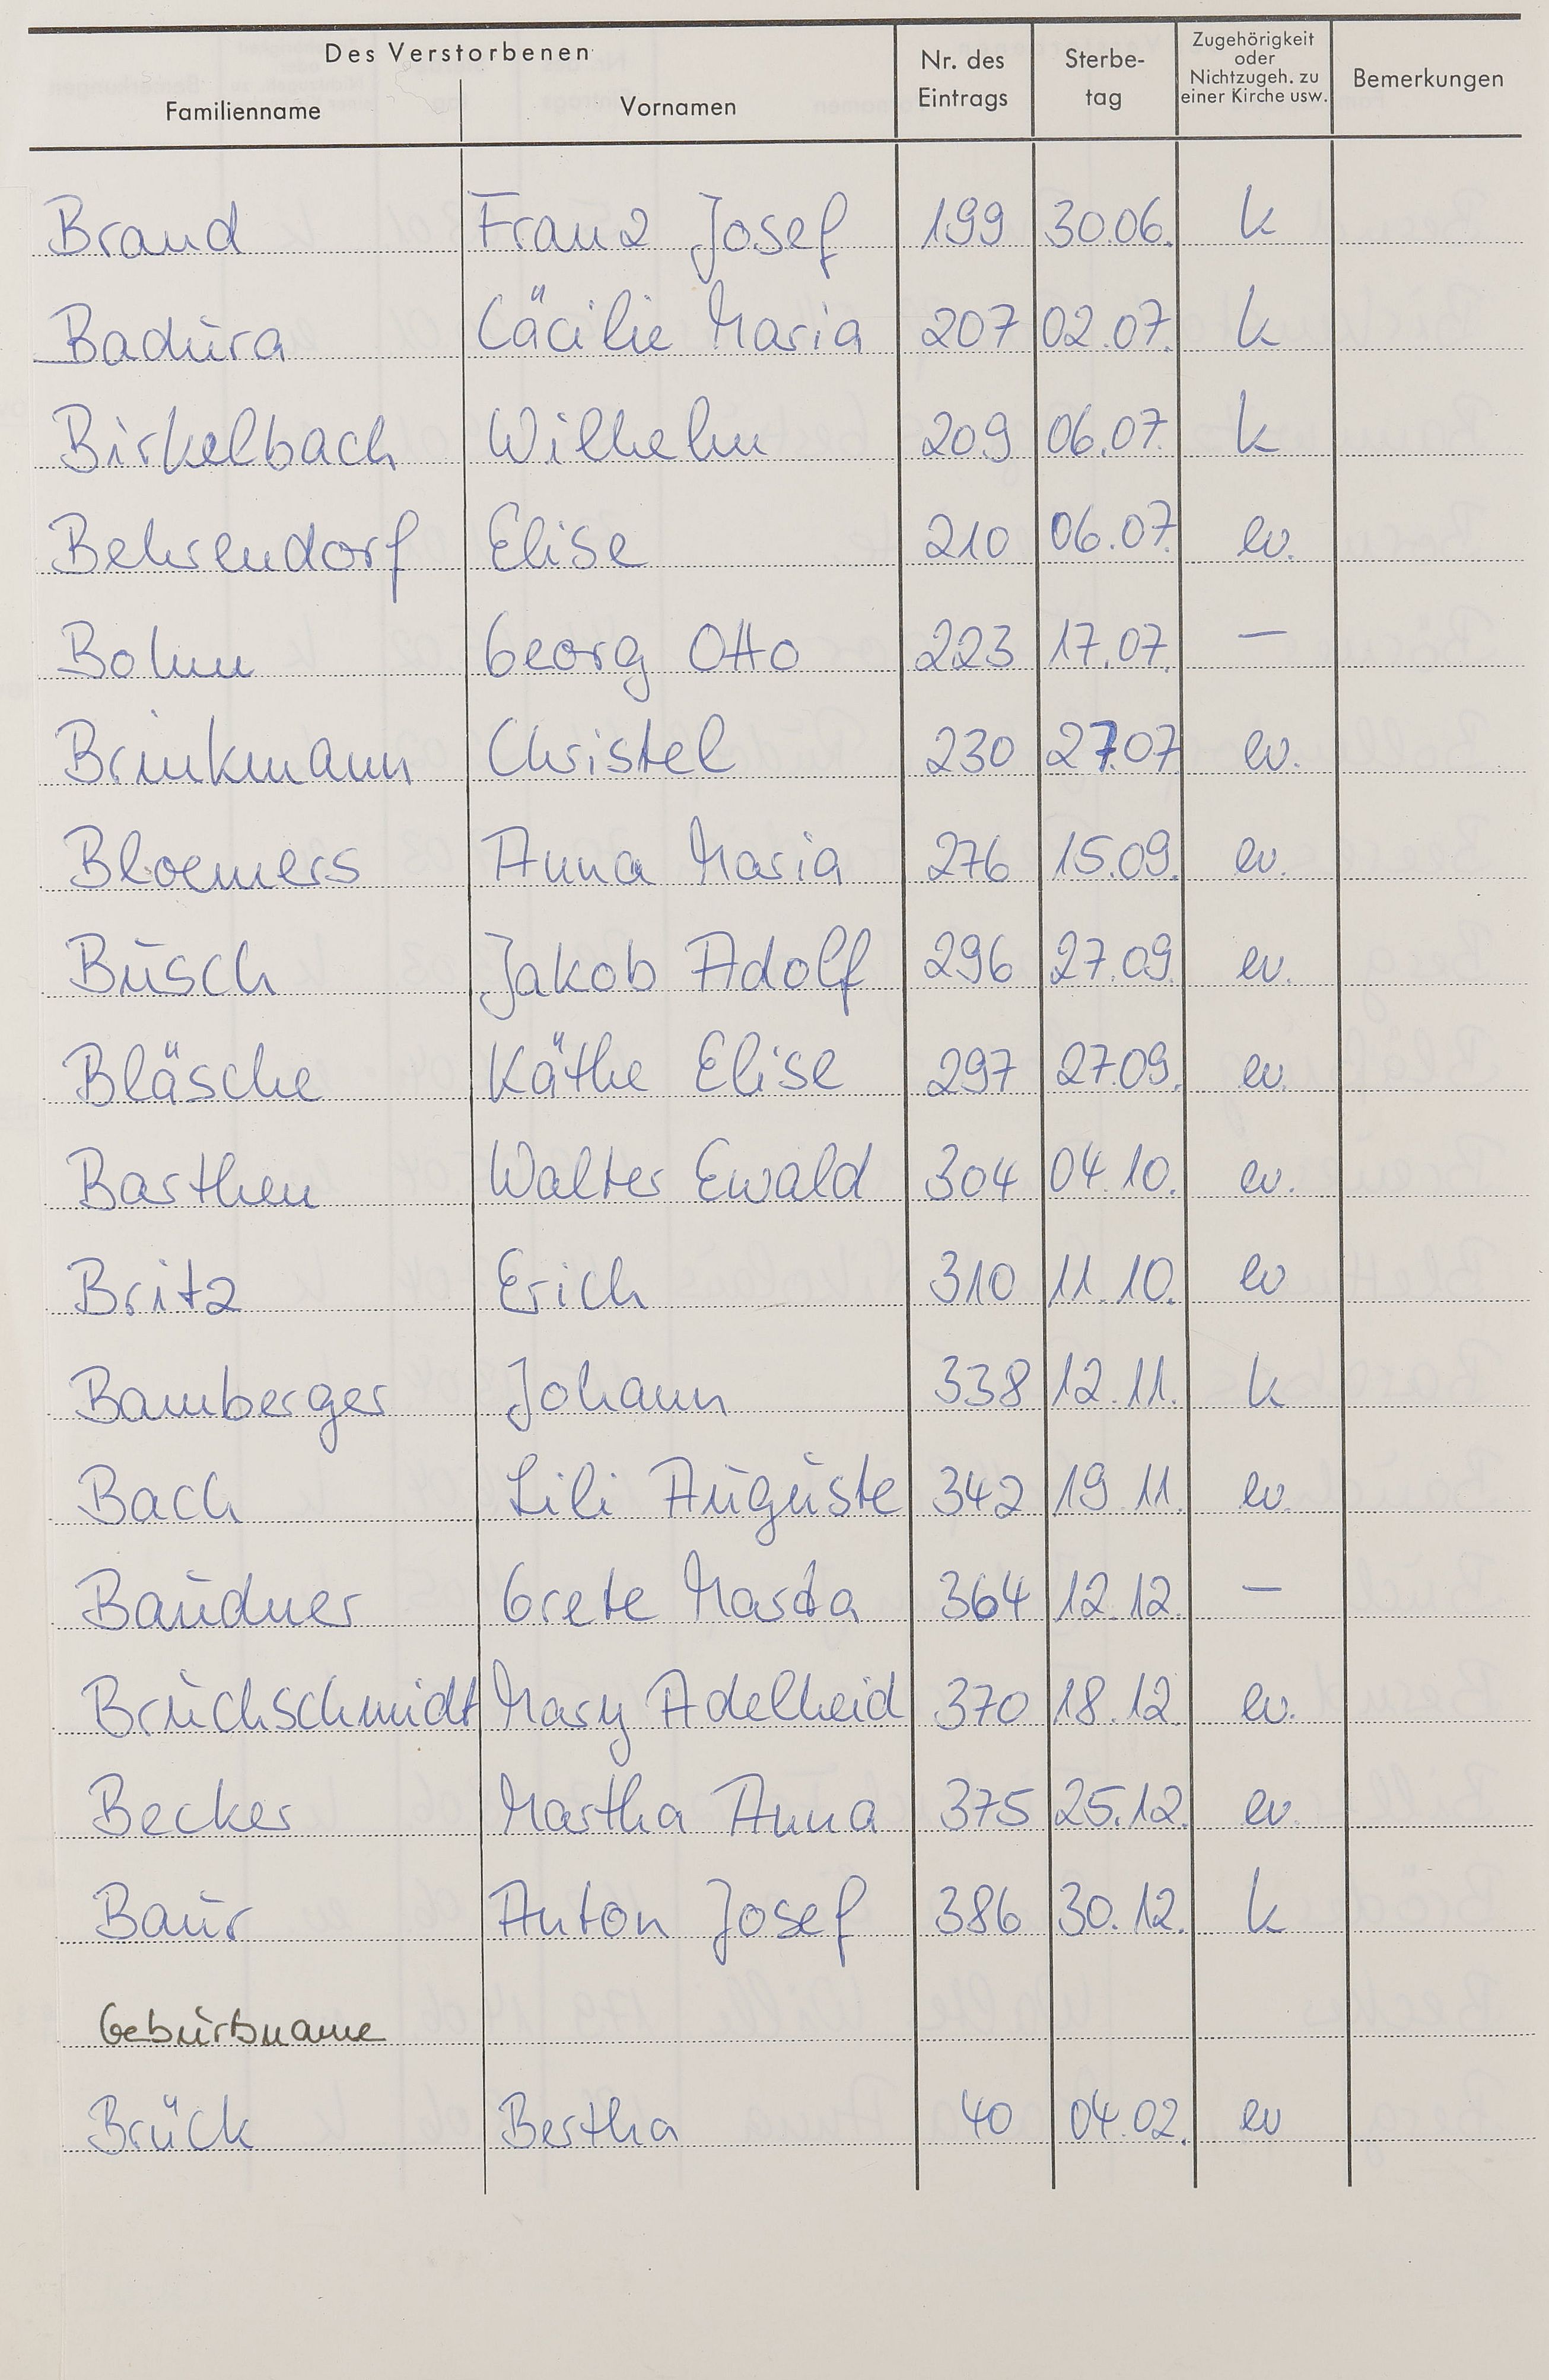 Des Verstorbenen
Familienname Vornamen Nr. des Eintrags Sterbe-tag Zugehörigkeit oder Nichtzugeh. zu einer Kirche usw. Bemerkungen
Brand Franz Josef 199 30.06. k
Badura Cäcilie Maria 207 02.07. k
Birkelbach Wilhelm 209 06.07. k
Behrendorf Elise 210 06.07. ev.
Bohm Georg Otto 223 17.07. —
Brinkmann Christel 230 27.07 ev.
Bloemers Anna Maria 276 15.09. ev.
Busch Jakob Adolf 296 27.09. ev.
Bläsche Käthe Elise 297 27.09. ev.
Barthen Walter Ewald 304 04.10. ev.
Britz Erich 310 11.10. ev
Bamberger Johann 338 12.11. k
Bach Lili Auguste 342 19.11. ev.
Baudner Grete 364 12.12. —
Bruchschmidt Mary Adelheid 370 18.12. ev.
Becker Martha Anna 375 25.12. ev.
Baur Anton Josef 386 30.12. k
Geburtsname
Brück Bertha 40 04.02. ev